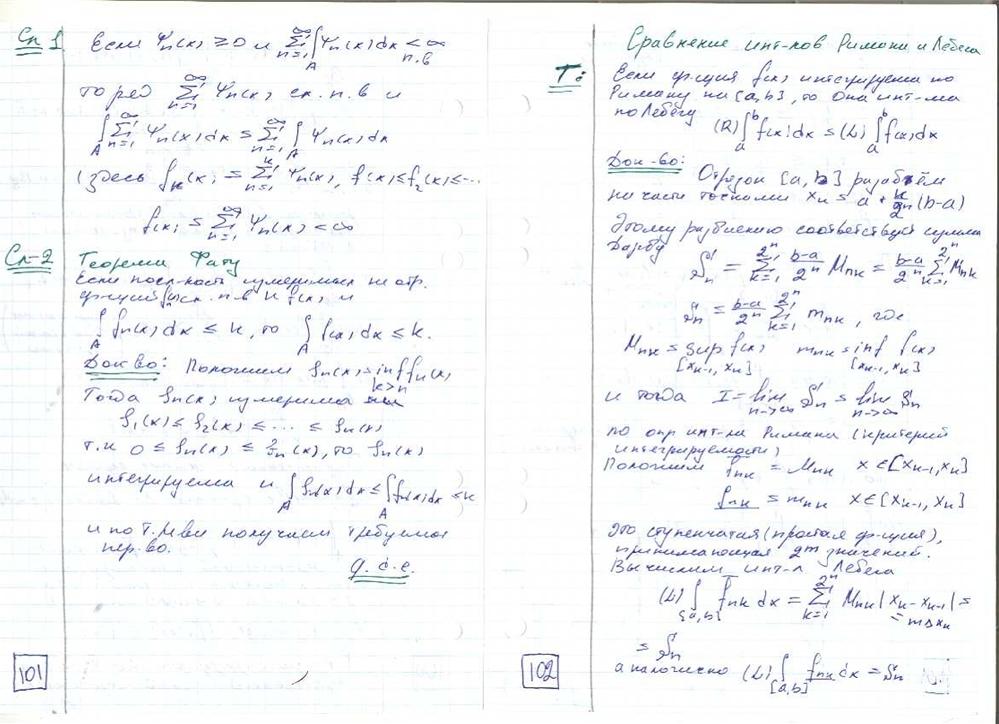 Сл 1 Если Ψn(x) ≥ 0 и ∑_{n=1}^∞ ∫_A Ψn(x)dx < ∞
п.в
то ряд ∑_{n=1}^∞ Ψn(x) сх. п.в и
∫_A ∑_{n=1}^∞ Ψn(x)dx = ∑_{n=1}^∞ ∫_A Ψn(x)dx
(здесь fk(x) = ∑_{n=1}^k Ψn(x), f1(x) ≤ f2(x) ≤ ...
f(x) = ∑_{n=1}^∞ Ψn(x) < ∞
Сл-2 Теорема Фату
Если посл-ность измеримых не отр.
функций fn сх. п.в к f(x) и
∫_A fn(x)dx ≤ k, то ∫_A f(x)dx ≤ k.
Док-во: Положим φn(x) = inf_{k>n} fn(x)
Тогда φn(x) измерима
φ1(x) ≤ φ2(x) ≤ ... ≤ φn(x)
т.к 0 ≤ φn(x) ≤ fn(x), то φn(x)
интегрируема и ∫_A φn(x)dx ≤ ∫_A fn(x)dx ≤ k
и по т. Леви получаем требуемое
нер-во.
q.d.e.
101
Сравнение инт-лов Римана и Лебега
Т: Если ф-ция f(x) интегрируема по
Риману на [a,b], то она инт-ма
по Лебегу
(R)∫_a^b f(x)dx = (L)∫_a^b f(x)dx
Док-во:
Отрезок [a,b] разобьём
на части точками xk = a + k/2^n (b-a)
Этому разбиению соответствуют суммы
Дарбу
Sn = ∑_{k=1}^{2^n} (b-a)/2^n Mnk = (b-a)/2^n ∑_{k=1}^{2^n} Mnk
sn = (b-a)/2^n ∑_{k=1}^{2^n} mnk, где
Mnk = sup_{[xk-1, xk]} f(x) mnk = inf_{[xk-1, xk]} f(x)
и тогда I = lim_{n→∞} Sn = lim_{n→∞} sn
по опр инт-ла Римана (критерий
интегрируемости)
Положим f̅nk = Mnk x∈[xk-1, xk]
f̲nk = mnk x∈[xk-1, xk)
Это ступенчатая (простая ф-ция),
принимающая 2^n значений.
Вычислим инт-л Лебега
(L)∫_{[a,b]} f̅nk dx = ∑_{k=1}^{2^n} Mnk |xk - xk-1| =
= m Δxk
= Sn
аналогично (L)∫_{[a,b]} f̲nk dx = sn
102